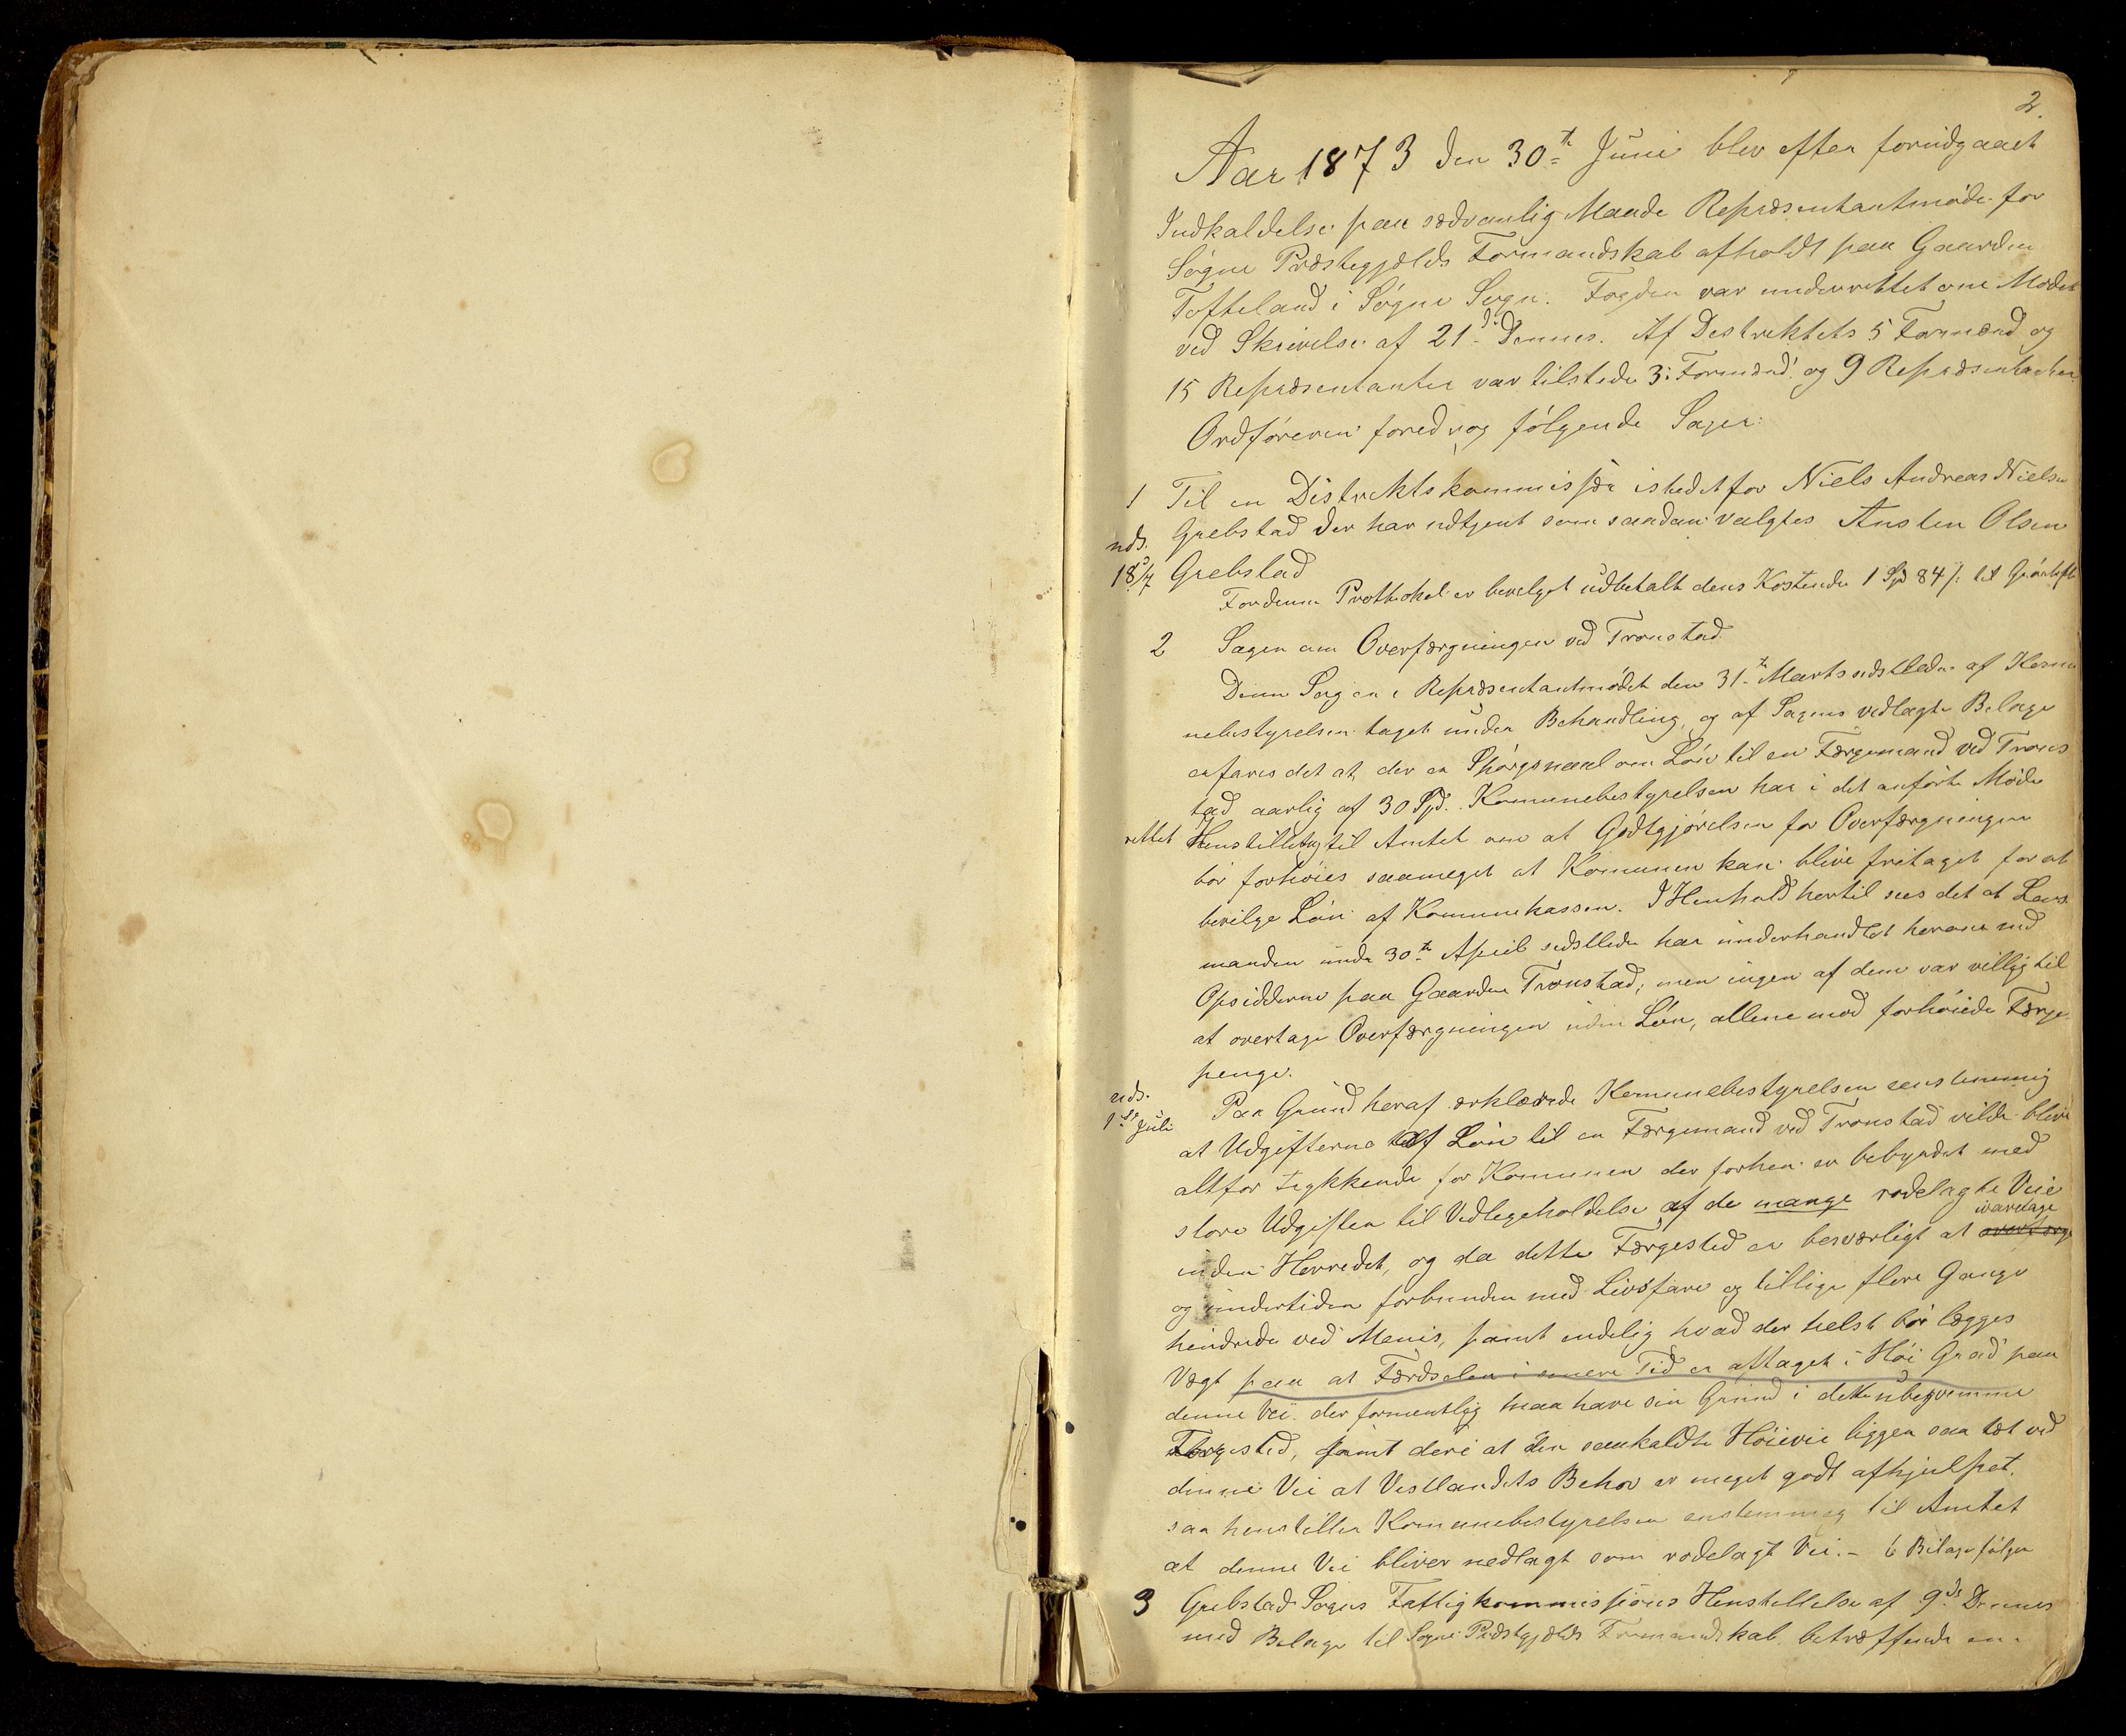 2.
Aar 1873 den 30te Juni blev efter forudgaaet
Indkaldelse paa sædvanlig Maade Repræsentantmøde for
Søgne Præstegjælds Formandskab afholdt paa Gaarden
Tofteland i Søgne Sogn. Fogden var underrettet om Mødet
ved Skrivelse af 21de Dennes. Af Destriktets 5 Formænd og
15 Repræsentanter var tilstede 3 Formænd og 9 Repræsentanter.
Ordføreren foredrog følgende Sager:
1 Til en Distriktskommissær istedetfor Niels Andreas Nielsen
uds. Grebstad der har udtjent som saadan valgtes Austen Olsen
18/7 Grebstad
Fordenne Prothokol er bevelget udbetalt dens Kostende 1 Spd 84 /:
2 Sagen om Overfærgningen ved Tronstad
Denne Sag er i Repræsentantmødet den 31te Marts sidstleden af Komu
nebestyrelsen taget under Behandling, og af Sagens vedlagte Belage
erfares det at der er Spørgsmaal om Løn til en Færgemand ved Trons
tad aarlig af 30 Spd. Komunebestyrelsen har i det anførte Møde
rettet Henstilling til Amtet om at Godtgjørelsen for Overfærgningen
bør forhøies saameget at Komunen kan blive fritaget for at
bevilge Løn af Komunekassen. I Henhold hertil sees det at Lens
manden under 30te April sidstleden har underhandlet herom med
Opsidderne paa Gaarden Tronstad; men ingen af dem var villig til
at overtage Overfærgningen uden Løn, allene mod forhøiede Færge
penge.
uds.
1ste Juli Paa Grund heraf erklærede Komunebestyrelsen eenstemmig
at Udgifterne af Løn til en Færgemand ved Tronstad vilde blive
altfor trykkende for Komunen der forhen er bebyrdet med
store Udgifter til Vedlegeholdelse af de mange rodelagte Veie
inden Herredet, og da dette Færgested er besværligt at ivaretage
og undertiden forbunden med Livsfare og tillige flere Gange
hindrede ved Menis, samt endelig hvad der helst bør lægges
Vægt paa at Færdselen i senere Tid er aftaget i Høi Grad paa
denne Vei der formentlig maa have sin Grund i dette ubeqvemme
Færgested, samt deri at den saakaldte Høievei ligger saa tæt ved
denne Vei at Vestlandets Behov er meget godt afhjulpet.
saa henstiller Komunebestyrelsen enstemmig til Amtet
at denne Vei bliver nedlagt som rodelagt Vei. - 6 Bilage følger
3 Grebstad Sogns Fattigkommissions Henstillelse af 9de Dennes
med Belage til Søgne Præstegjælds Formandskab betræffende en